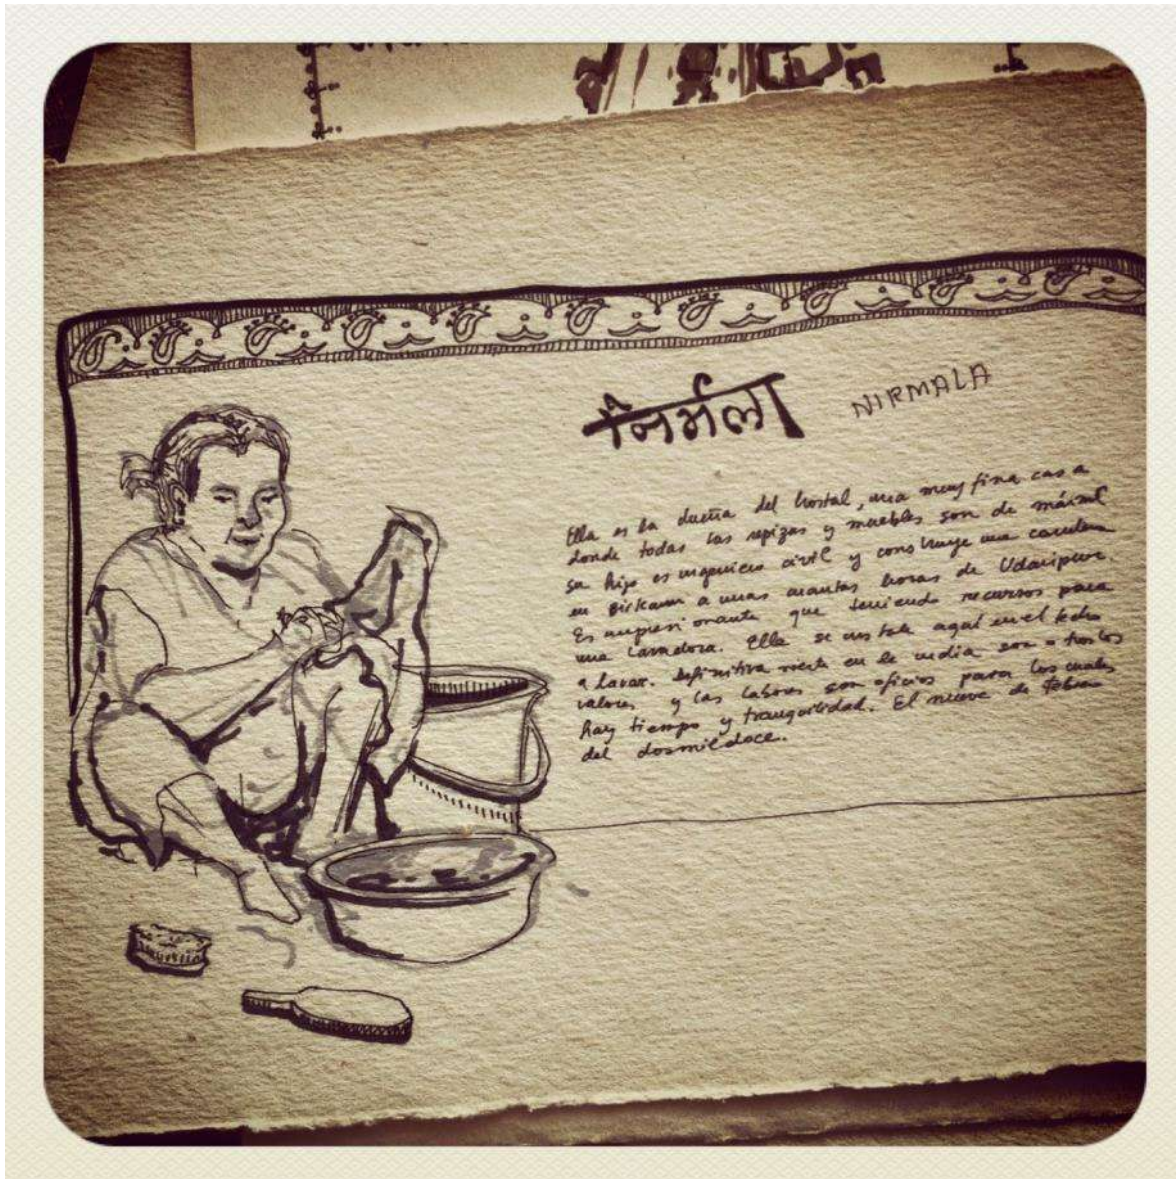 निर्मला NIRMALA
Ella es la dueña del hostal, una muy fina casa
donde todas las repizas y muebles son de mármol
su hijo es ingeniero civil y construye una carretera
en a unas cuantas horas de Udaipur.
Es impresionante que teniendo recursos para
una lavadora. Ella se instala aquí en el techo
a lavar. Definitivamente en la india son otros los
valores y las labores son oficios para los cuales
hay tiempo y tranquilidad. El nueve de febrero
del dosmildoce.